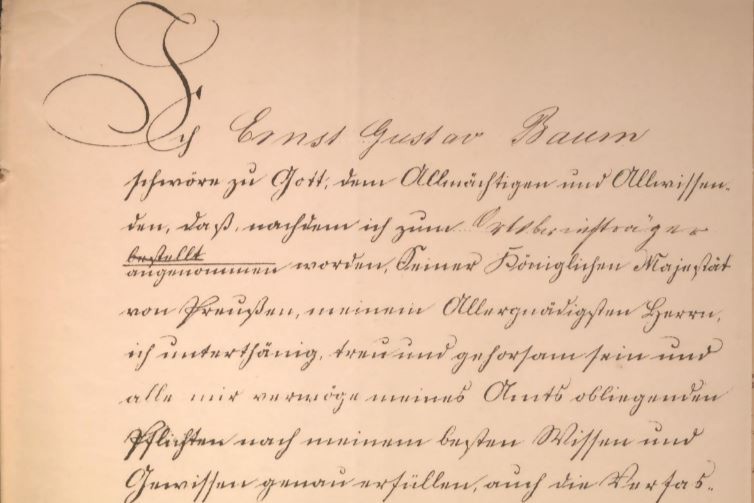 Ich Ernst Gustav Baum
schwöre zu Gott, dem Allmächtigen und Allwissen-
den, daß, nachdem ich zum Ortsbriefträger
bestellt
angenommen worden, Seiner Königlichen Majestät
von Preußen, meinem Allergnädigsten Herrn,
ich unterthänig, treu und gehorsam sein und
alle mir vermöge meines Amts obliegenden
Pflichten nach meinem besten Wissen und
Gewissen genau erfüllen, auch die Verfas-